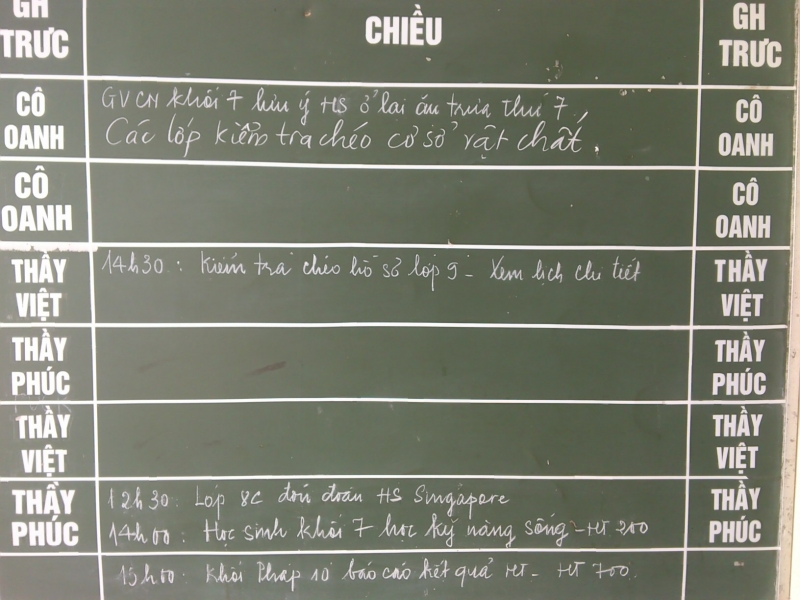 GH TRƯC CHIỀU GH TRƯC
CÔ OANH GVCN khối 7 lưu ý HS ở lại ăn trưa thứ 7. CÔ OANH
Các lớp kiểm tra chéo cơ sở vật chất.
CÔ OANH CÔ OANH
THẦY VIỆT 14h30: Kiểm tra chéo hồ sơ lớp 9 - Xem lịch chi tiết THẦY VIỆT
THẦY PHÚC THẦY PHÚC
THẦY VIỆT THẦY VIỆT
THẦY PHÚC 12h30: Lớp 8C đón đoàn HS Singapore THẦY PHÚC
14h00: Học sinh khối 7 học kỹ năng sống - HT 200
15h00: Khối Pháp 10 báo cáo kết quả HT - HT 700.